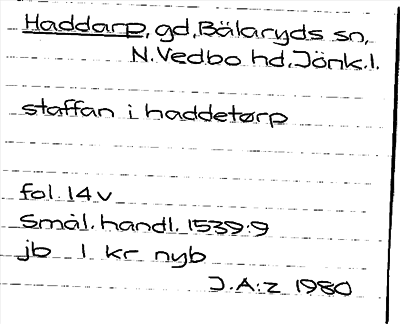 Haddarp, gd, Bälaryds sn,
N. Vedbo hd, Jönk. l.
staffan i haddetørp
fol. 14 v
Smål. handl. 1539:9
jb 1 kr nyb
J.A:z 1980